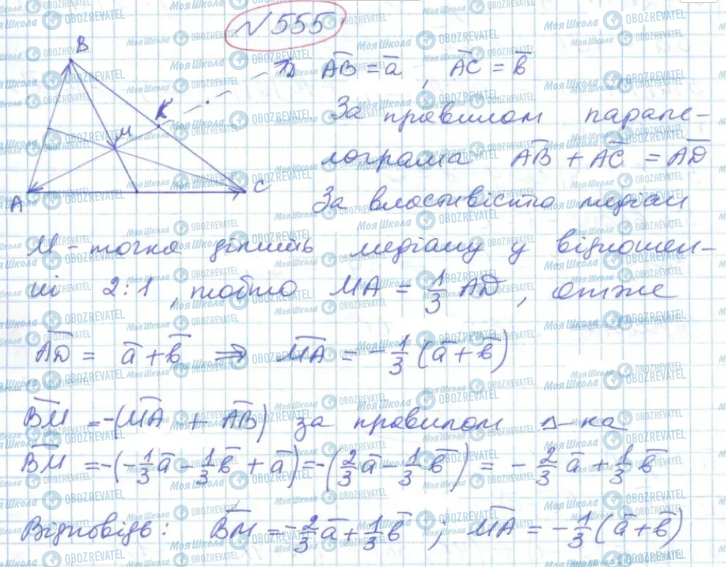 №555
B
K
M
A
C
D
AB = a , AC = b
За правилом парале-
лограма AB + AC = AD
За властивістю медіан
M - точка ділить медіану у відношен-
ні 2:1 , тобто MA = 1/3 AD , отже
AD = a + b ⇒ MA = -1/3 (a + b)
BM = -(MA + AB) за правилом Δ-ка
BM = -(-1/3 a - 1/3 b + a) = -(2/3 a - 1/3 b) = -2/3 a + 1/3 b
Відповідь: BM = -2/3 a + 1/3 b ; MA = -1/3 (a + b)
Моя Школа
OBOZREVATEL